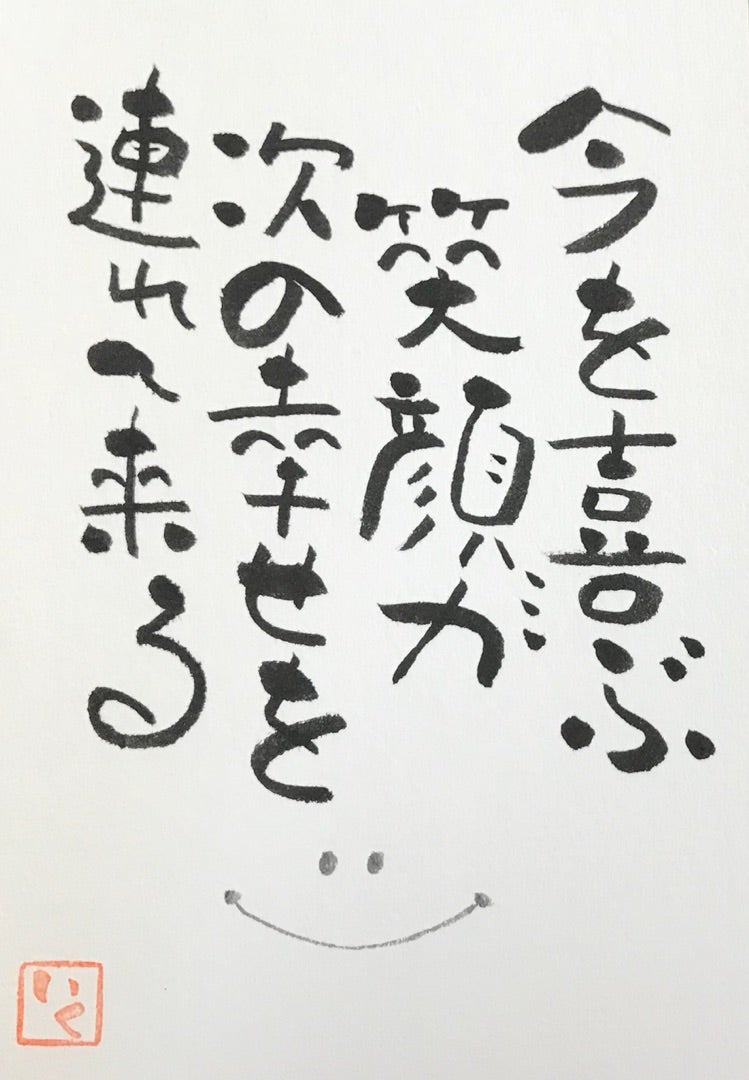 今を喜ぶ
笑顔が
次の幸せを
連れて来る
いく